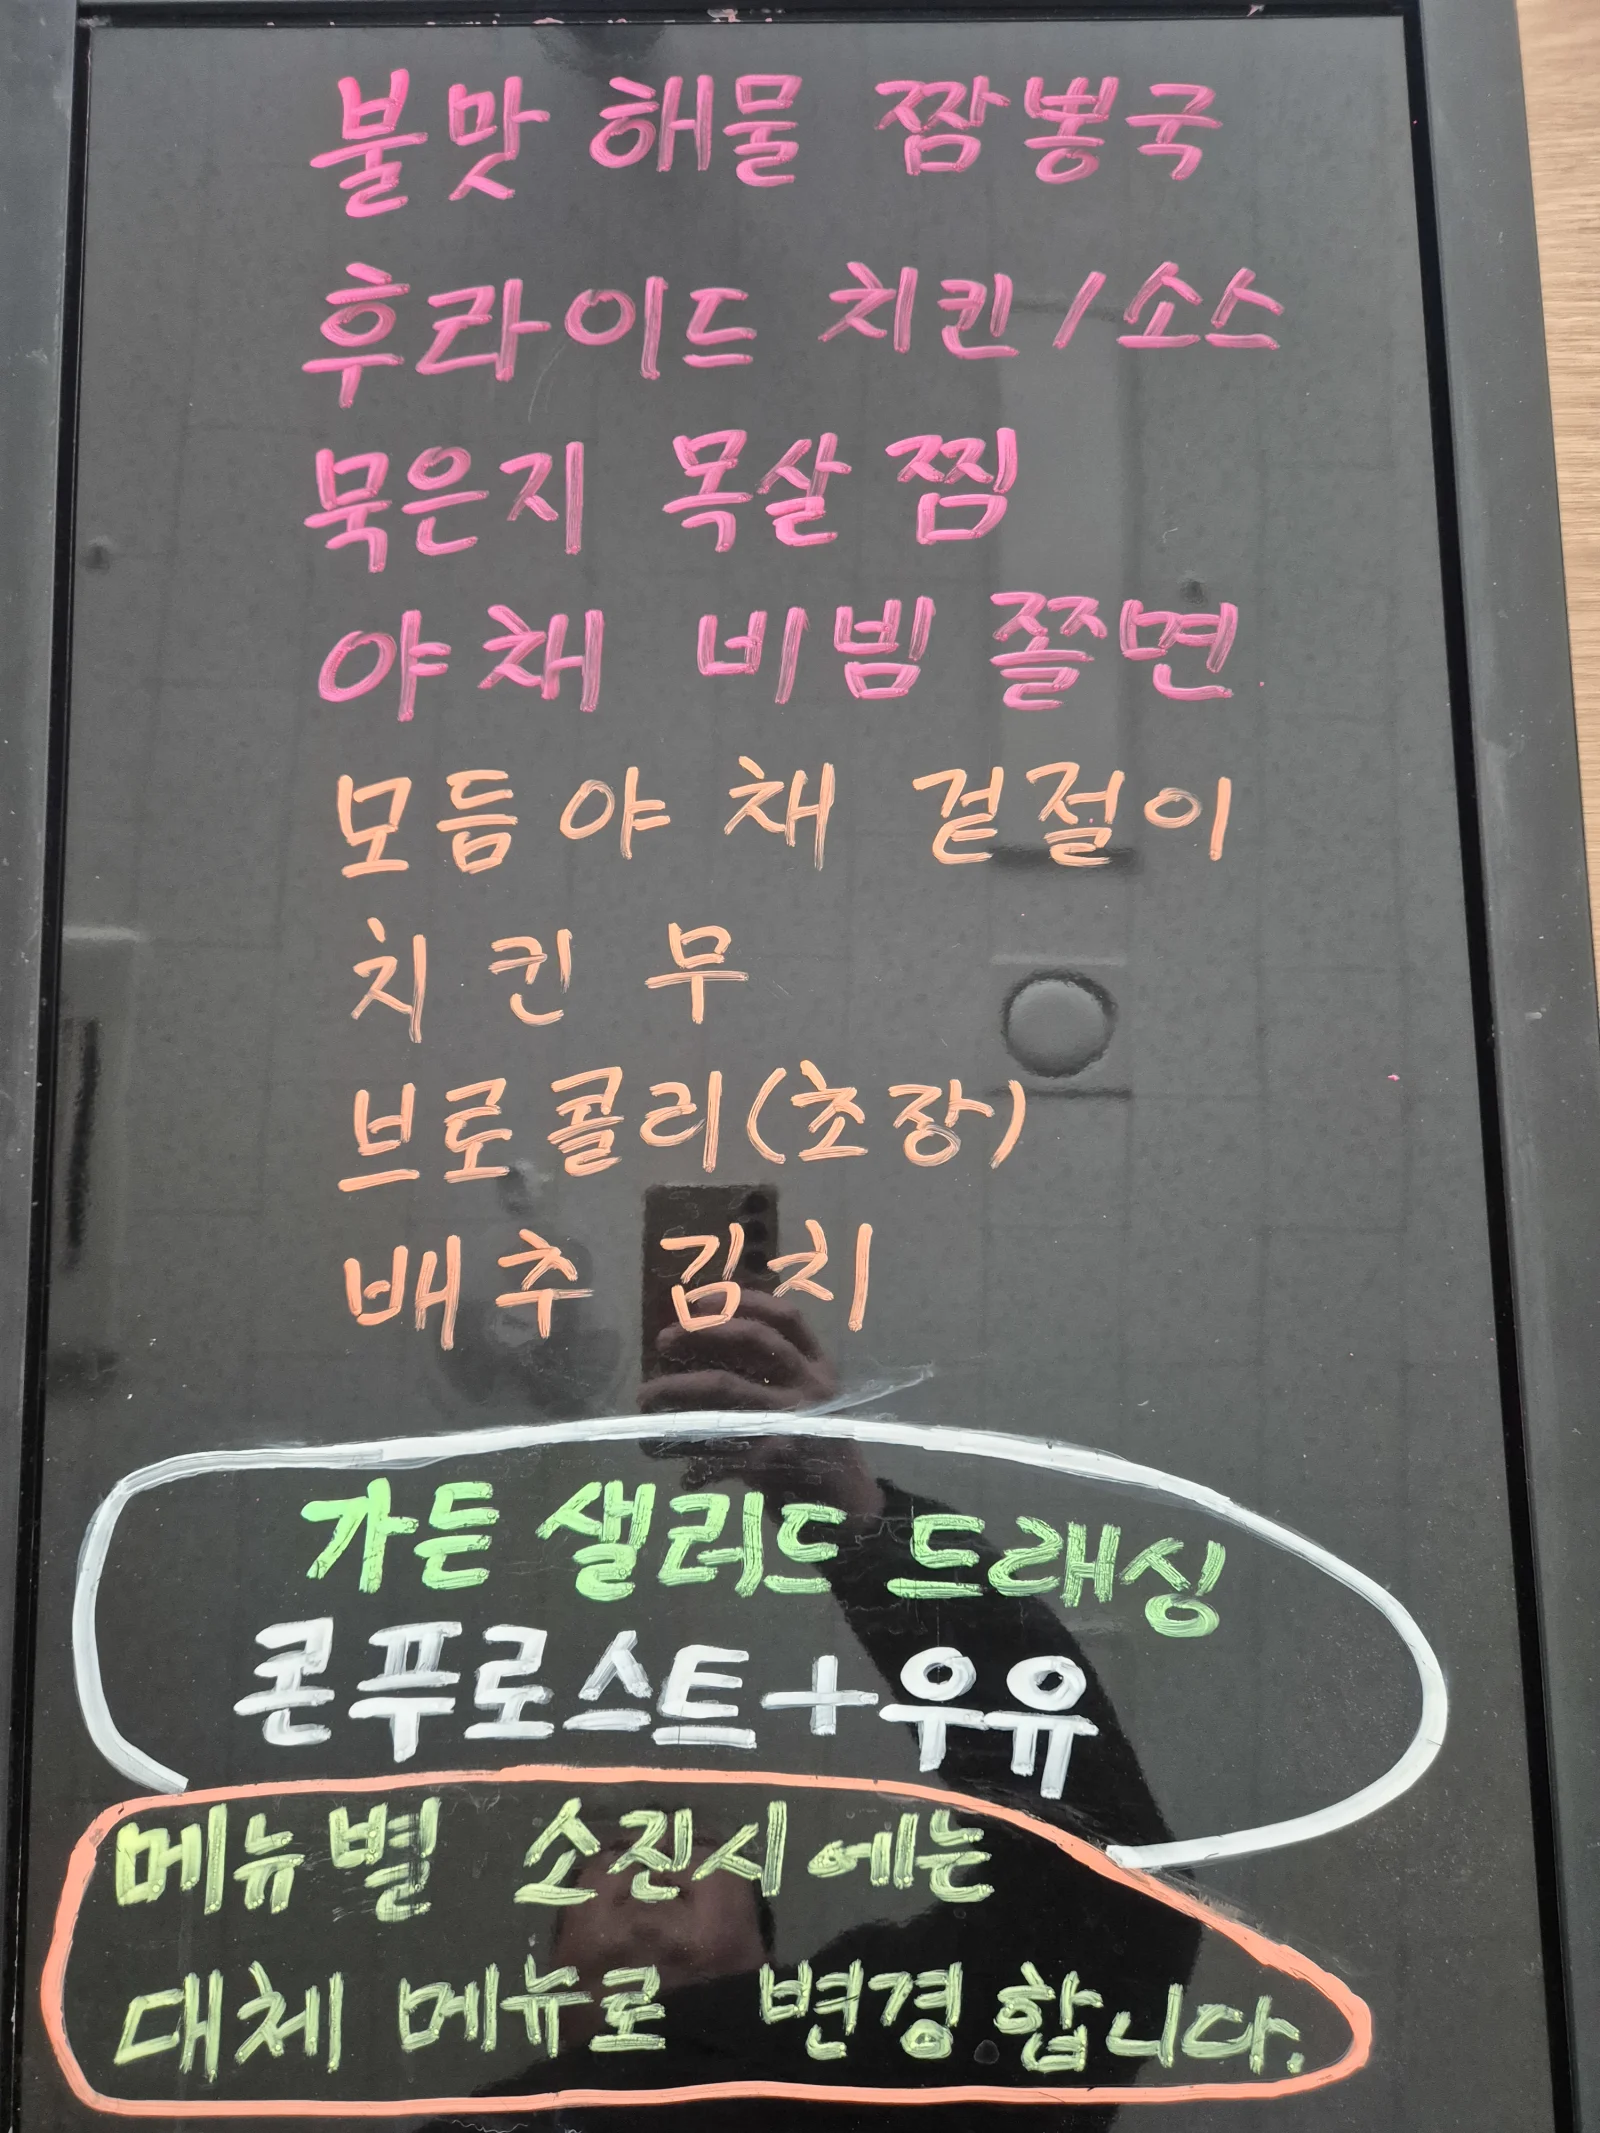 불맛 해물 짬뽕국
후라이드 치킨/소스
묵은지 목살찜
야채 비빔쫄면
모듬야채 겉절이
치킨무
브로콜리(초장)
배추 김치
가든 샐러드 드래싱
콘푸로스트+우유
메뉴별 소진시에는
대체 메뉴로 변경합니다.